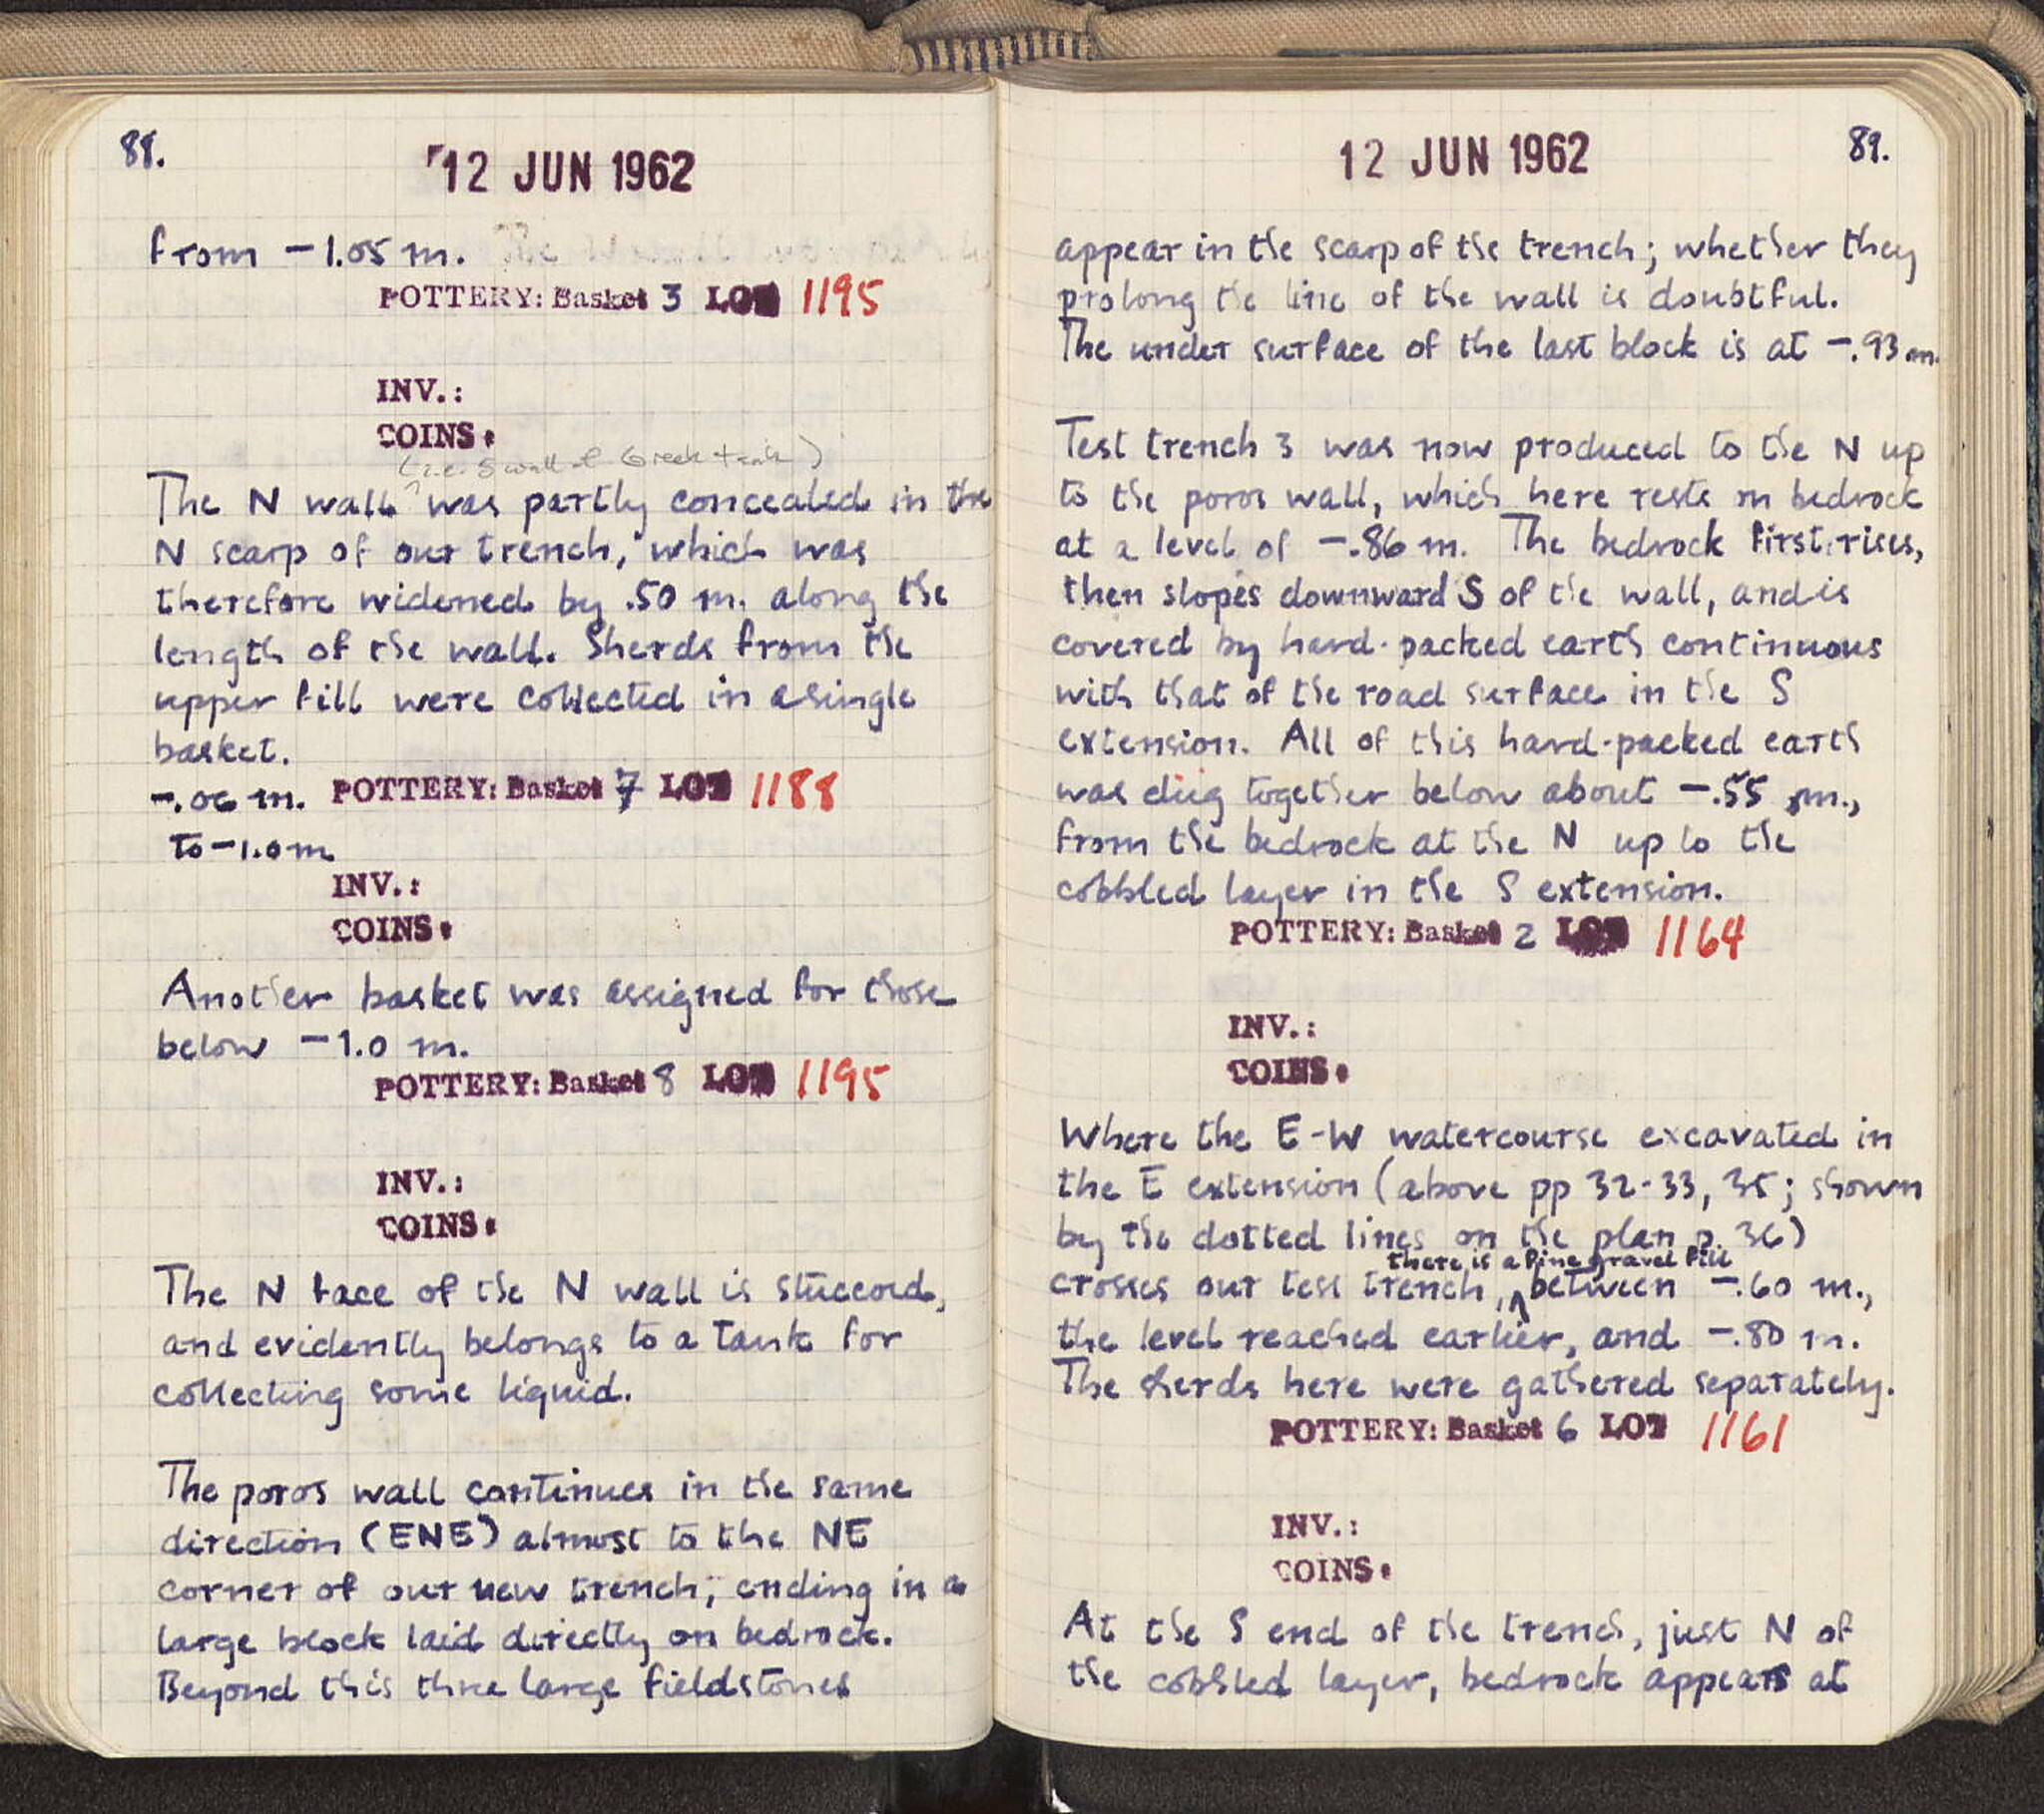 88.
12 JUN 1962
from -1.05 m.
POTTERY: Basket 3 LOT 1195
INV.:
COINS:
(i.e. S wall of Greek tank)
The N wall was partly concealed in the
N scarp of our trench, which was
therefore widened by .50 m. along the
length of the wall. Sherds from the
upper fill were collected in a single
basket.
-.06 m. POTTERY: Basket 7 LOT 1188
to -1.0 m
INV.:
COINS:
Another basket was assigned for those
below -1.0 m.
POTTERY: Basket 8 LOT 1195
INV.:
COINS:
The N face of the N wall is stuccoed,
and evidently belongs to a tank for
collecting some liquid.
The poros wall continues in the same
direction (ENE) almost to the NE
corner of our new trench, ending in a
large block laid directly on bedrock.
Beyond this three large fieldstones
12 JUN 1962
89.
appear in the scarp of the trench; whether they
prolong the line of the wall is doubtful.
The under surface of the last block is at -.93 m.
Test trench 3 was now produced to the N up
to the poros wall, which here rests on bedrock
at a level of -.86 m. The bedrock first rises,
then slopes downward S of the wall, and is
covered by hard-packed earth continuous
with that of the road surface in the S
extension. All of this hard-packed earth
was dug together below about -.55 m.,
from the bedrock at the N up to the
cobbled layer in the S extension.
POTTERY: Basket 2 LOT 1164
INV.:
COINS:
Where the E-W watercourse excavated in
the E extension (above pp 32-33, 35; shown
by the dotted lines on the plan p. 36)
there is a fine gravel fill
crosses our test trench, ∧ between -.60 m.,
the level reached earlier, and -.80 m.
The sherds here were gathered separately.
POTTERY: Basket 6 LOT 1161
INV.:
COINS:
At the S end of the trench, just N of
the cobbled layer, bedrock appears at